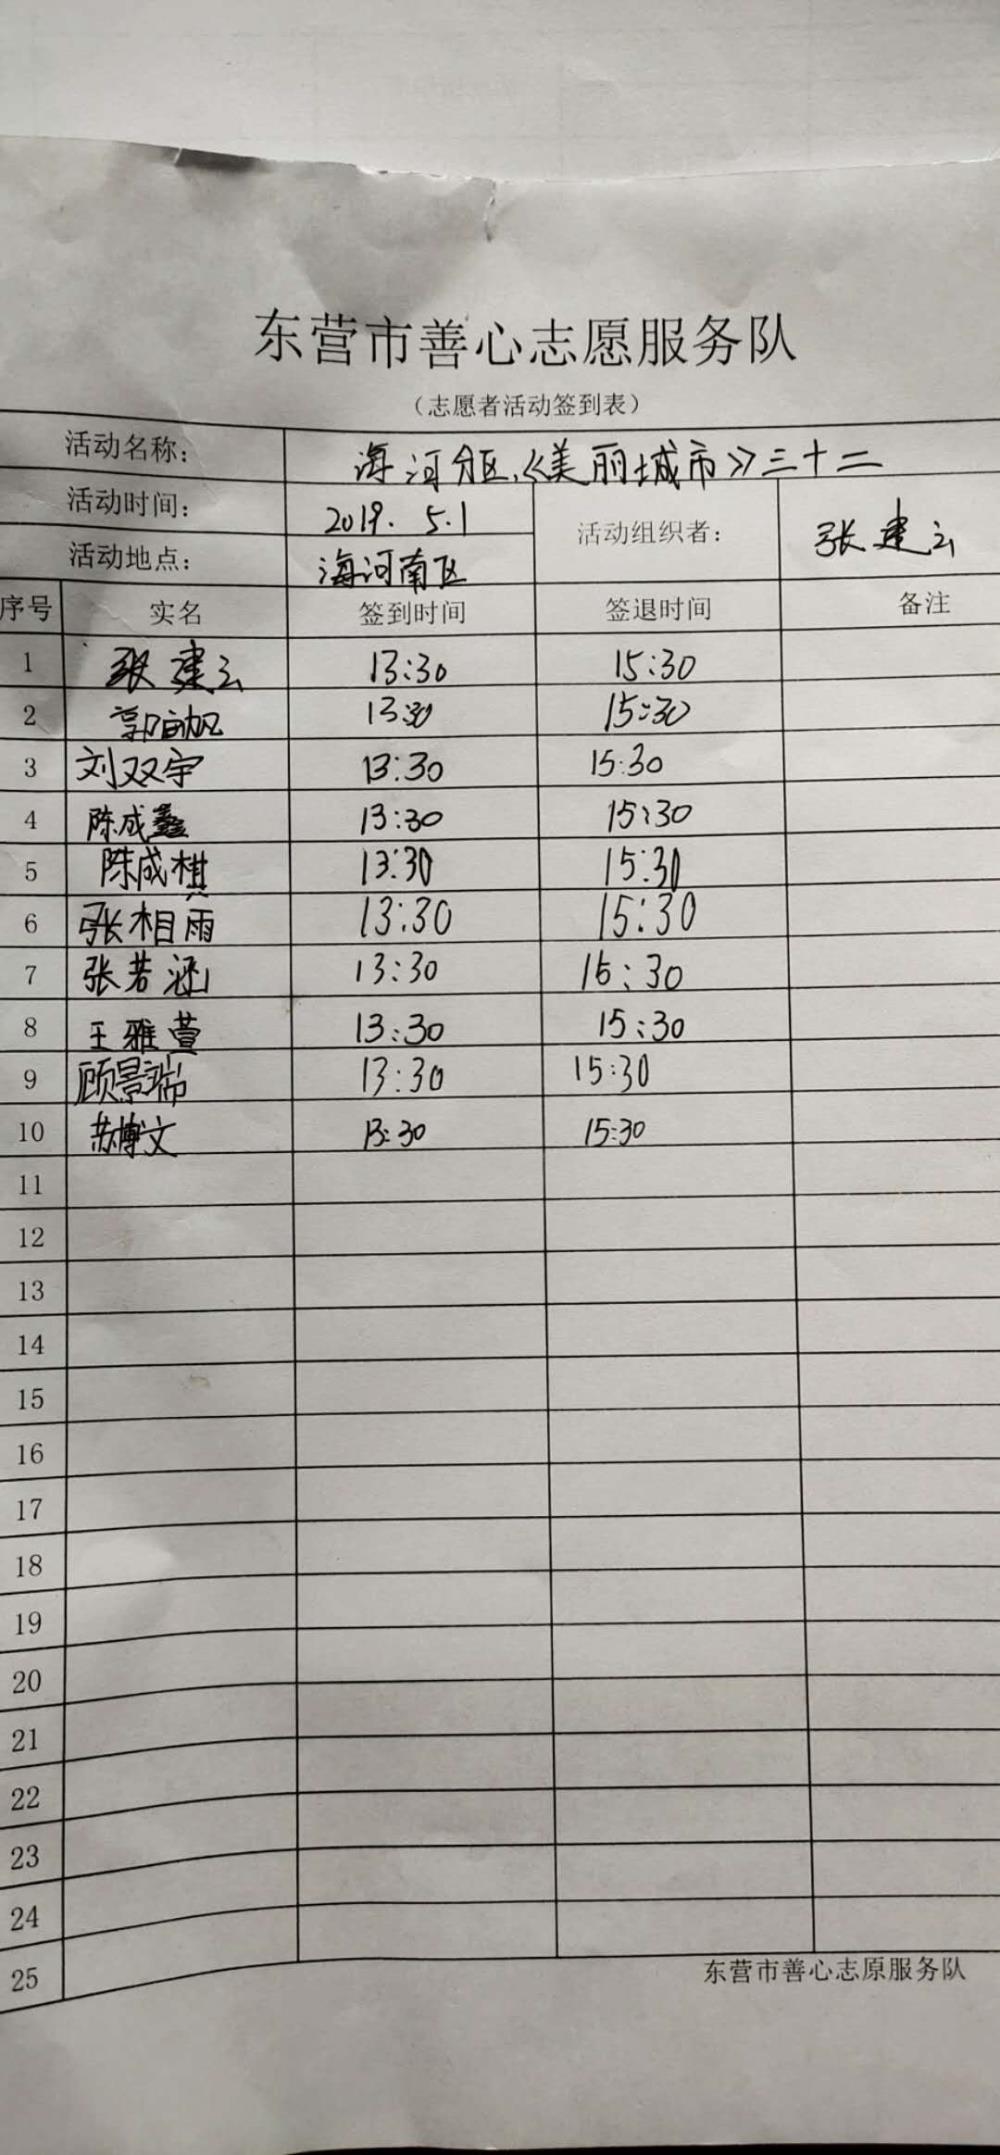 东营市善心志愿服务队
（志愿者活动签到表）
活动名称： 海河分区《美丽城市》三十二
活动时间： 2019. 5.1 活动组织者： 张建云
活动地点： 海河南区
序号 实名 签到时间 签退时间 备注
1 张建云 13:30 15:30
2 郭 13:30 15:30
3 刘双宇 13:30 15:30
4 陈成鑫 13:30 15:30
5 陈成棋 13:30 15:30
6 张相雨 13:30 15:30
7 张若涵 13:30 15:30
8 王雅萱 13:30 15:30
9 顾景瑞 13:30 15:30
10 苏博文 13:30 15:30
11
12
13
14
15
16
17
18
19
20
21
22
23
24
25
东营市善心志原服务队